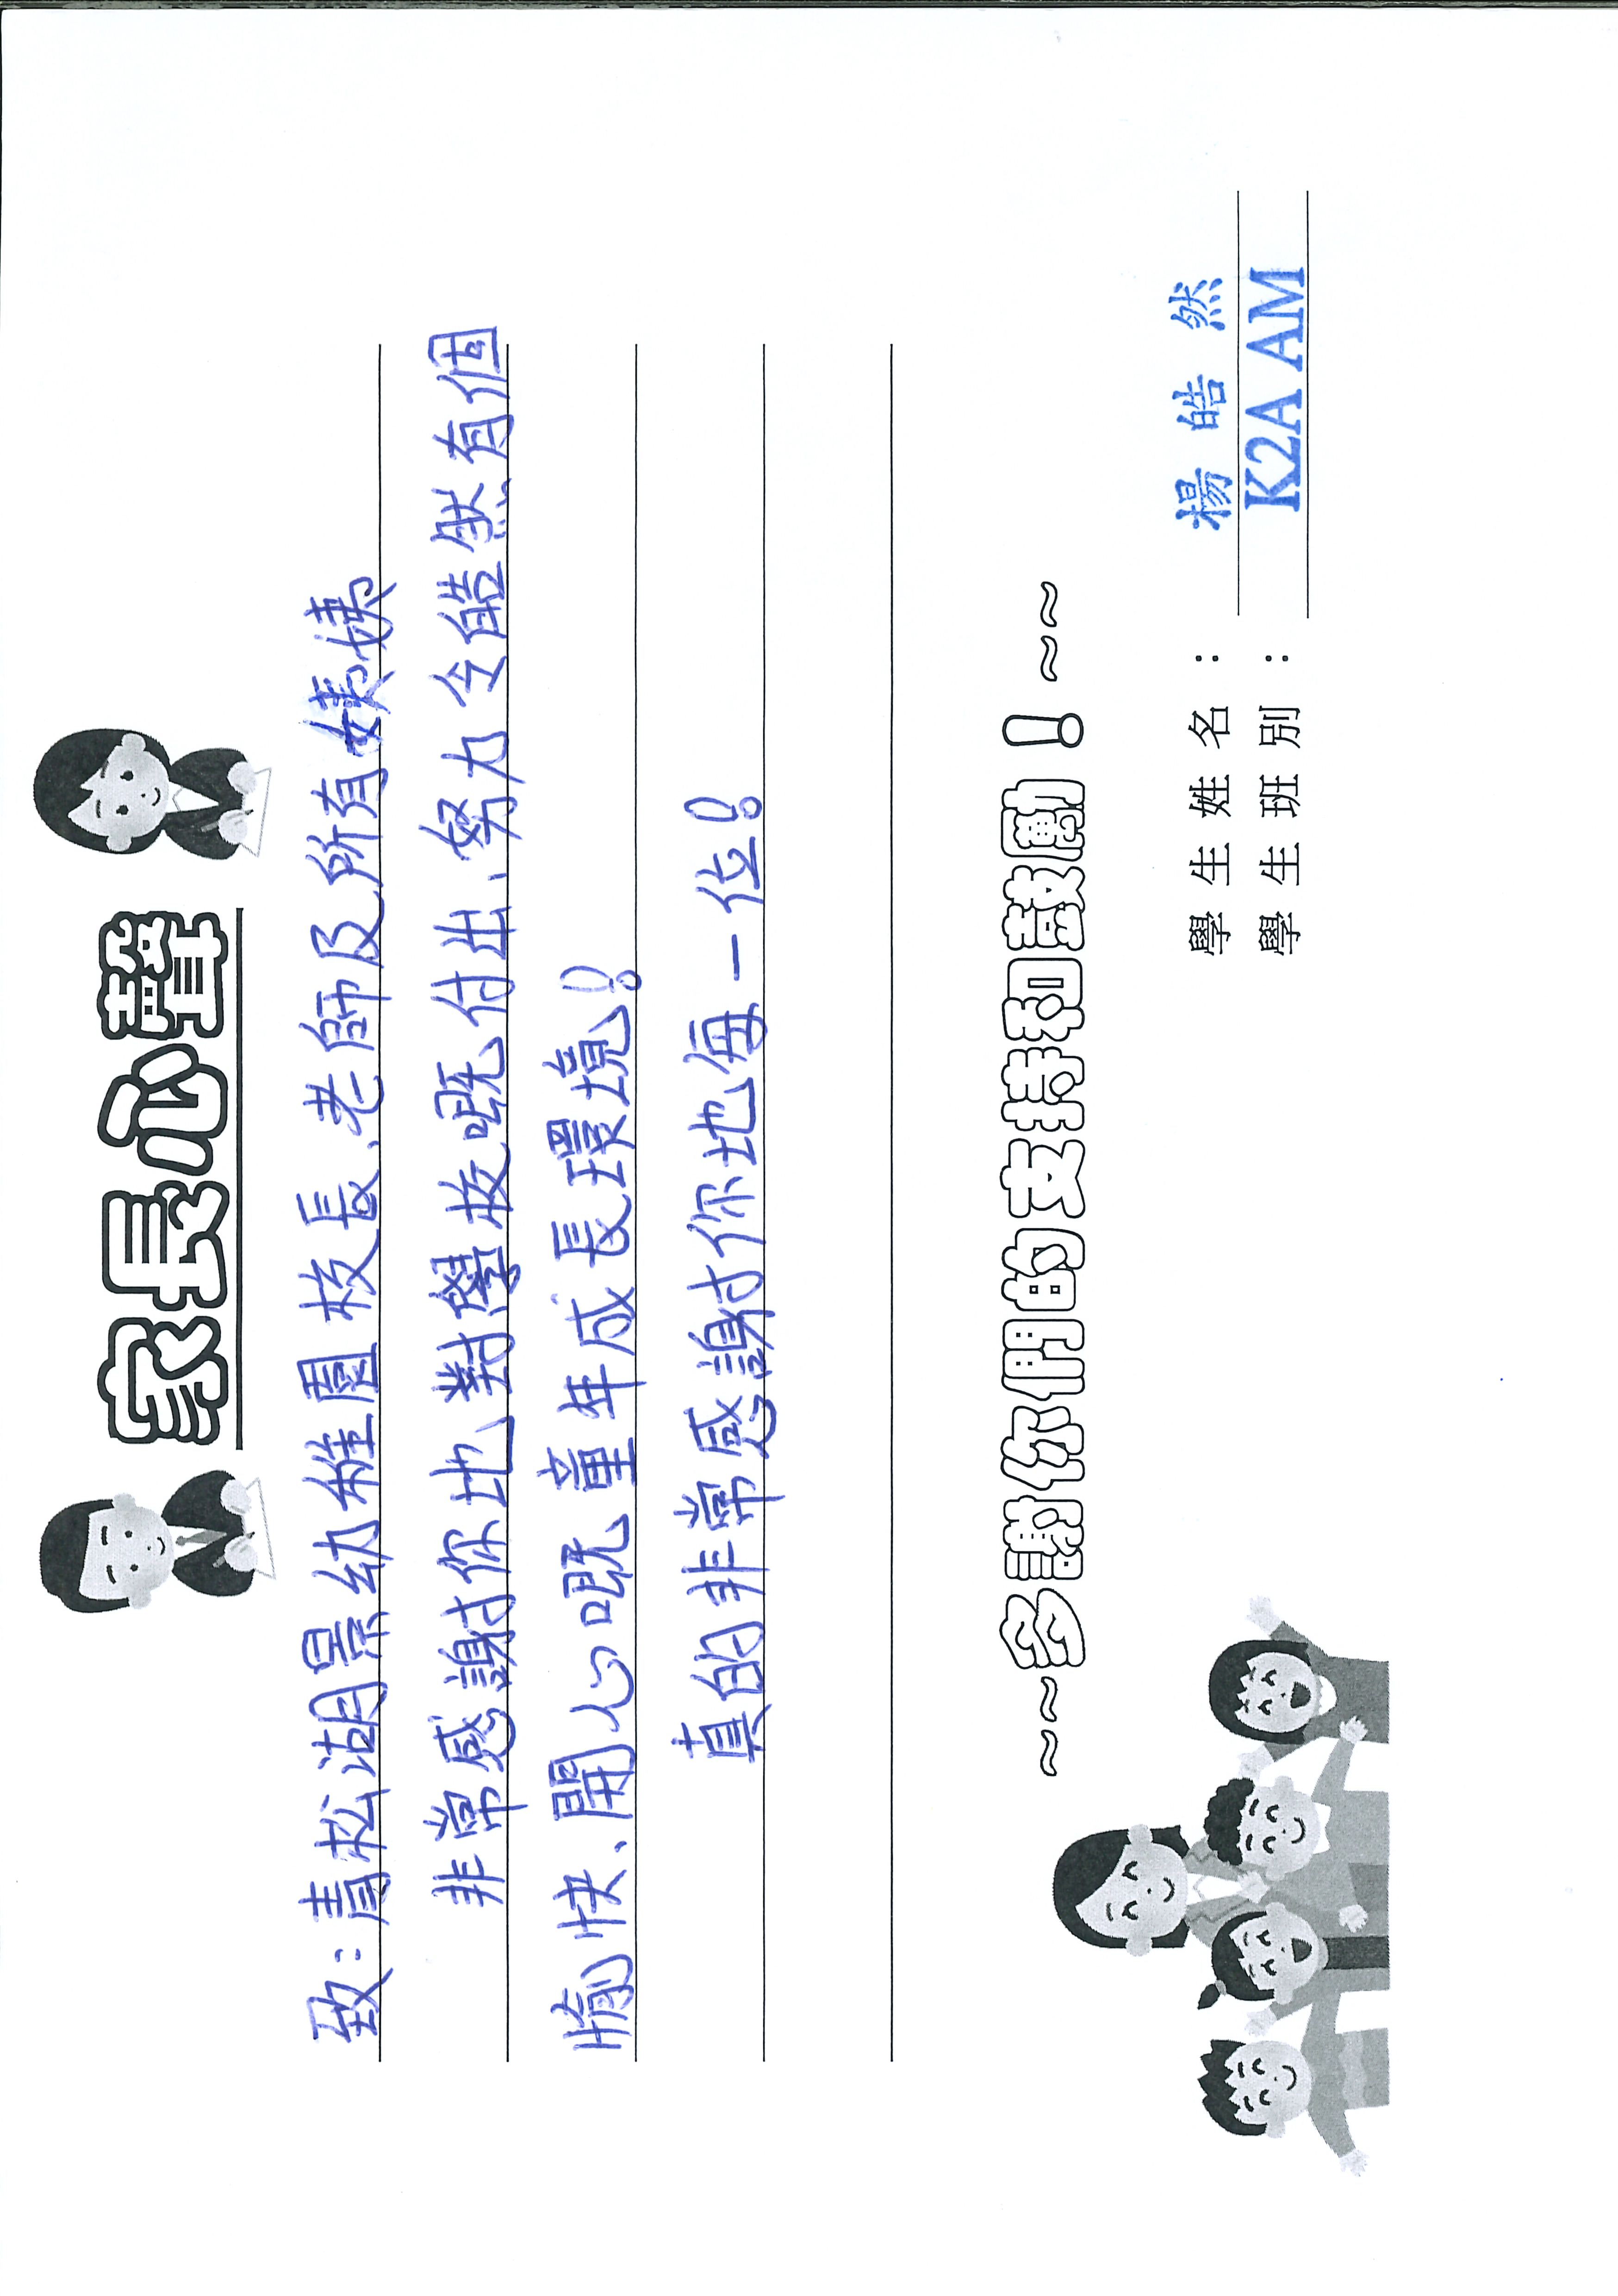 家長心聲
致：青松湖景幼稚園校長、老師及所有姨姨
非常感謝你地對學校嘅付出、努力令皓然有個
愉快、開心嘅童年成長環境！
真的非常感謝你地每一位！
~~多謝你們的支持和鼓勵！~~
學生姓名：楊皓然
學生班別：K2A AM